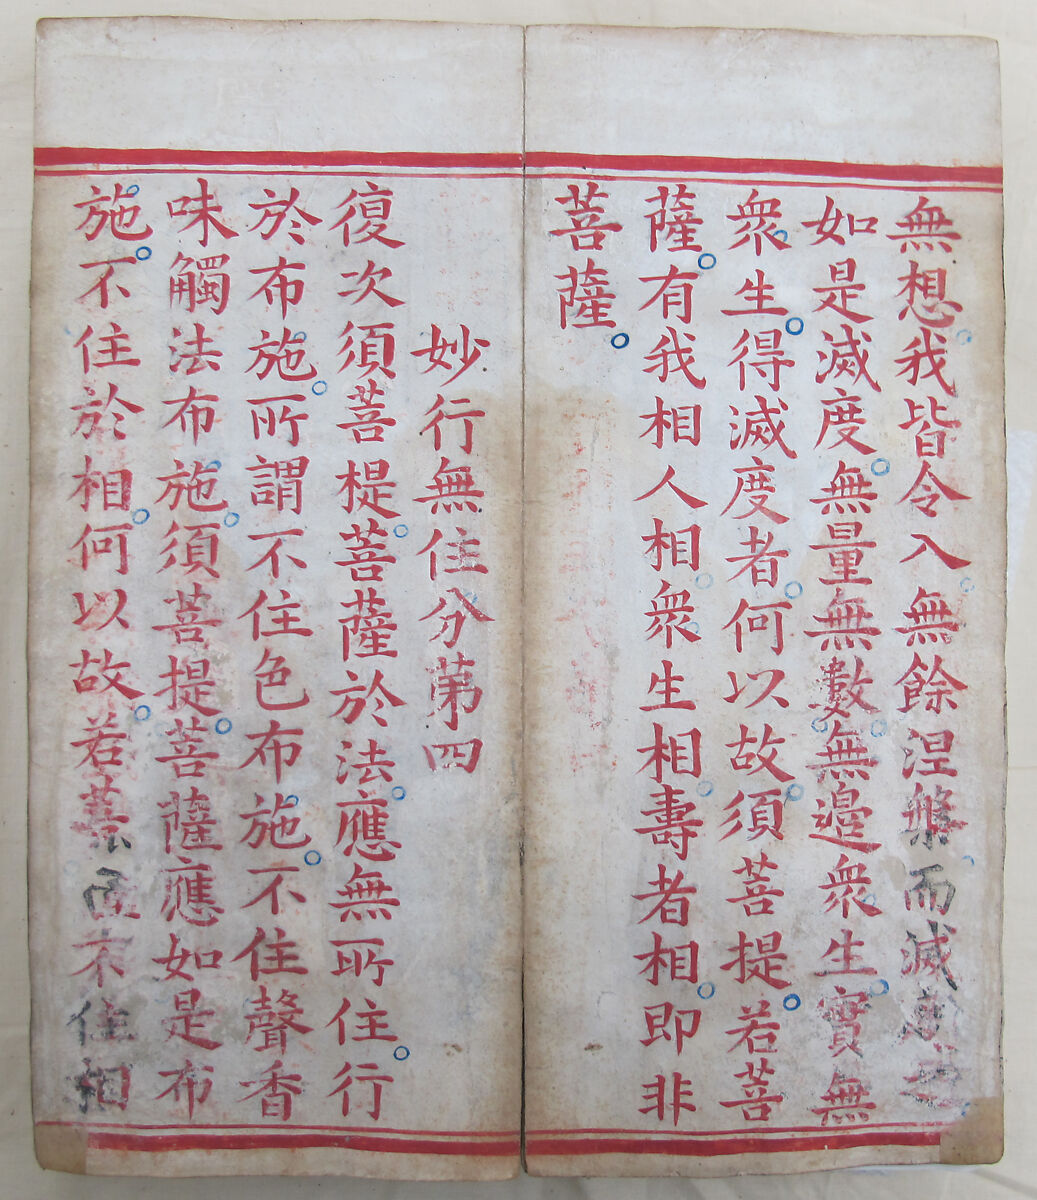 無想我皆令入無餘涅槃而滅度之
如是滅度無量無數無邉衆生實無
衆生得滅度者何以故須菩提若菩
薩有我相人相衆生相壽者相即非
菩薩
妙行無住分苐四
復次須菩提菩薩於法應無所住行
於布施所謂不住色布施不住聲香
味觸法布施須菩提菩薩應如是布
施不住於相何以故若菩薩不住相